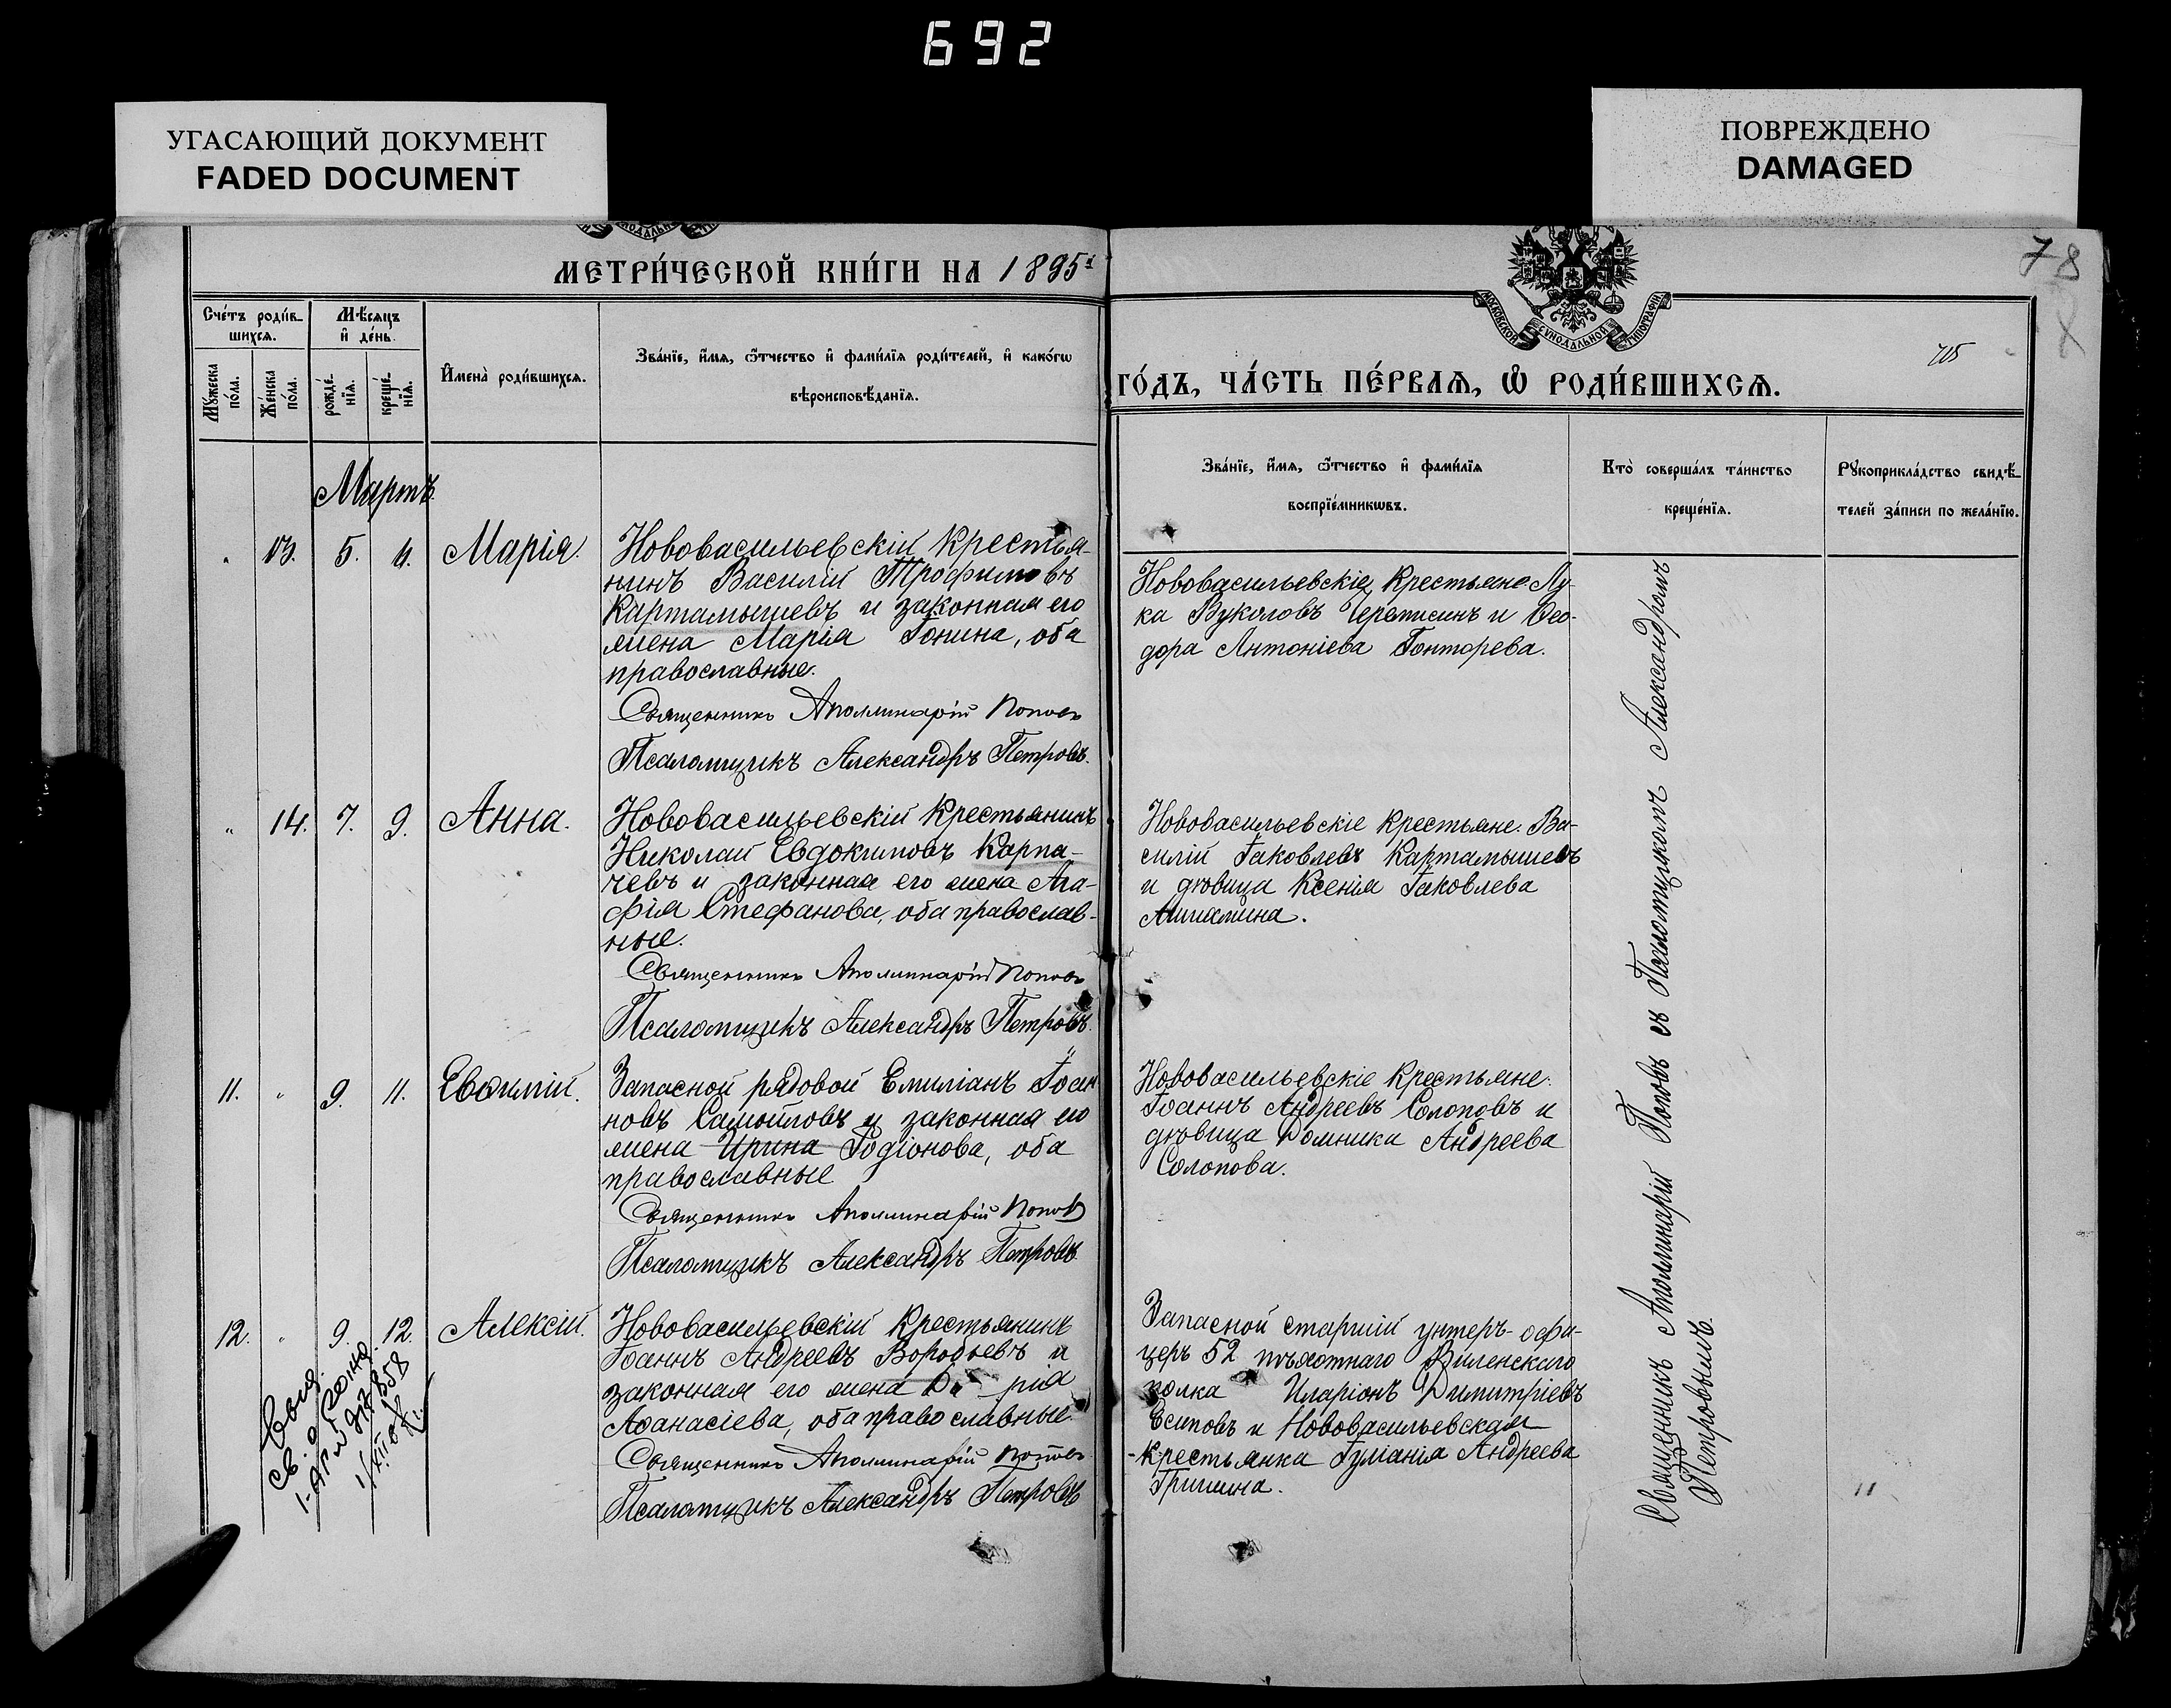 692
УГАСАЮЩИЙ ДОКУМЕНТ
FADED DOCUMENT
ПОВРЕЖДЕНО
DAMAGED
МЕТРИ́ЧЕСКОЙ КНИ́ГИ НА 1895
78
705
МОСКОВСКОЙ СѴНОДАЛЬНОЙ ТИПОГРАФІИ
ГО́ДЪ, ЧА́СТЬ ПЕ́РВАЯ, Ѡ РОДИ́ВШИХСЯ.
Сче́тъ роди́в-
шихся.
Мѣсяцъ
и де́нь.
Мꙋжеска по́ла.
Же́нска по́ла.
рожде́-нїя.
креще́-нїя.
Имена̀ роди́вшихся.
Зва́нїе, и́мя, ѻ́тчество и фами́лїя роди́телей, и како́гѡ
вѣроисповѣ́данїя.
Зва́нїе, и́мя, ѻ́тчество и фами́лїя
воспрїе́мникѡвъ.
Кто̀ соверша́лъ та́инство
креще́нїя.
Рꙋкоприкла́дство свидѣ́-
телей за́писи по жела́нїю.
Мартъ.
" 13. 5. 6. Марія.
Нововасильевскій крестья-
нинъ Василій Трофимовъ
Картамышевъ и законная его
жена Марія Іонина, оба
православные.
Священникъ Аполлинарій Поповъ
Псаломщикъ Александръ Петровъ.
Нововасильевскіе крестьяне Лу-
ка Вуколовъ Черемисинъ и Ѳео-
дора Антоніева Гонторева.
" 14. 7. 9. Анна.
Нововасильевскій крестьянинъ
Николай Евдокимовъ Карпа-
чевъ и законная его жена Ага-
фія Стефанова, оба православ-
ные.
Священникъ Аполлинарій Поповъ
Псаломщикъ Александръ Петровъ.
Нововасильевскіе крестьяне: Ва-
силій Іаковлевъ Картамышевъ
и дѣвица Ксенія Іаковлева
11. " 9. 11. Евѳимій.
Запасной рядовой Емиліанъ Іоан
новъ Самойловъ и законная его
жена Ирина Родіонова, оба
православные
Священникъ Аполлинарій Поповъ
Псаломщикъ Александръ Петровъ
Нововасильевскіе крестьяне:
Іоаннъ Андреевъ Солоповъ и
дѣвица Домника Андреева
Солопова.
12. " 9. 12. Алексій.
Нововасильевскій крестьянинъ
Іоаннъ Андреевъ Воробьевъ и
законная его жена Да-рія
Аѳанасіева, оба православные.
Священникъ Аполлинарій Поповъ
Псаломщикъ Александръ Петровъ
Запасной старшій унтеръ-офи-
церъ 52 пѣхотнаго Виленскаго
полка Иларіонъ Димитріевъ
Есиповъ и Нововасильевская
крестьянка Іуліанія Андреева
Гришина.
Священникъ Аполлинарій Поповъ съ Псаломщикомъ Александромъ
Петровымъ.